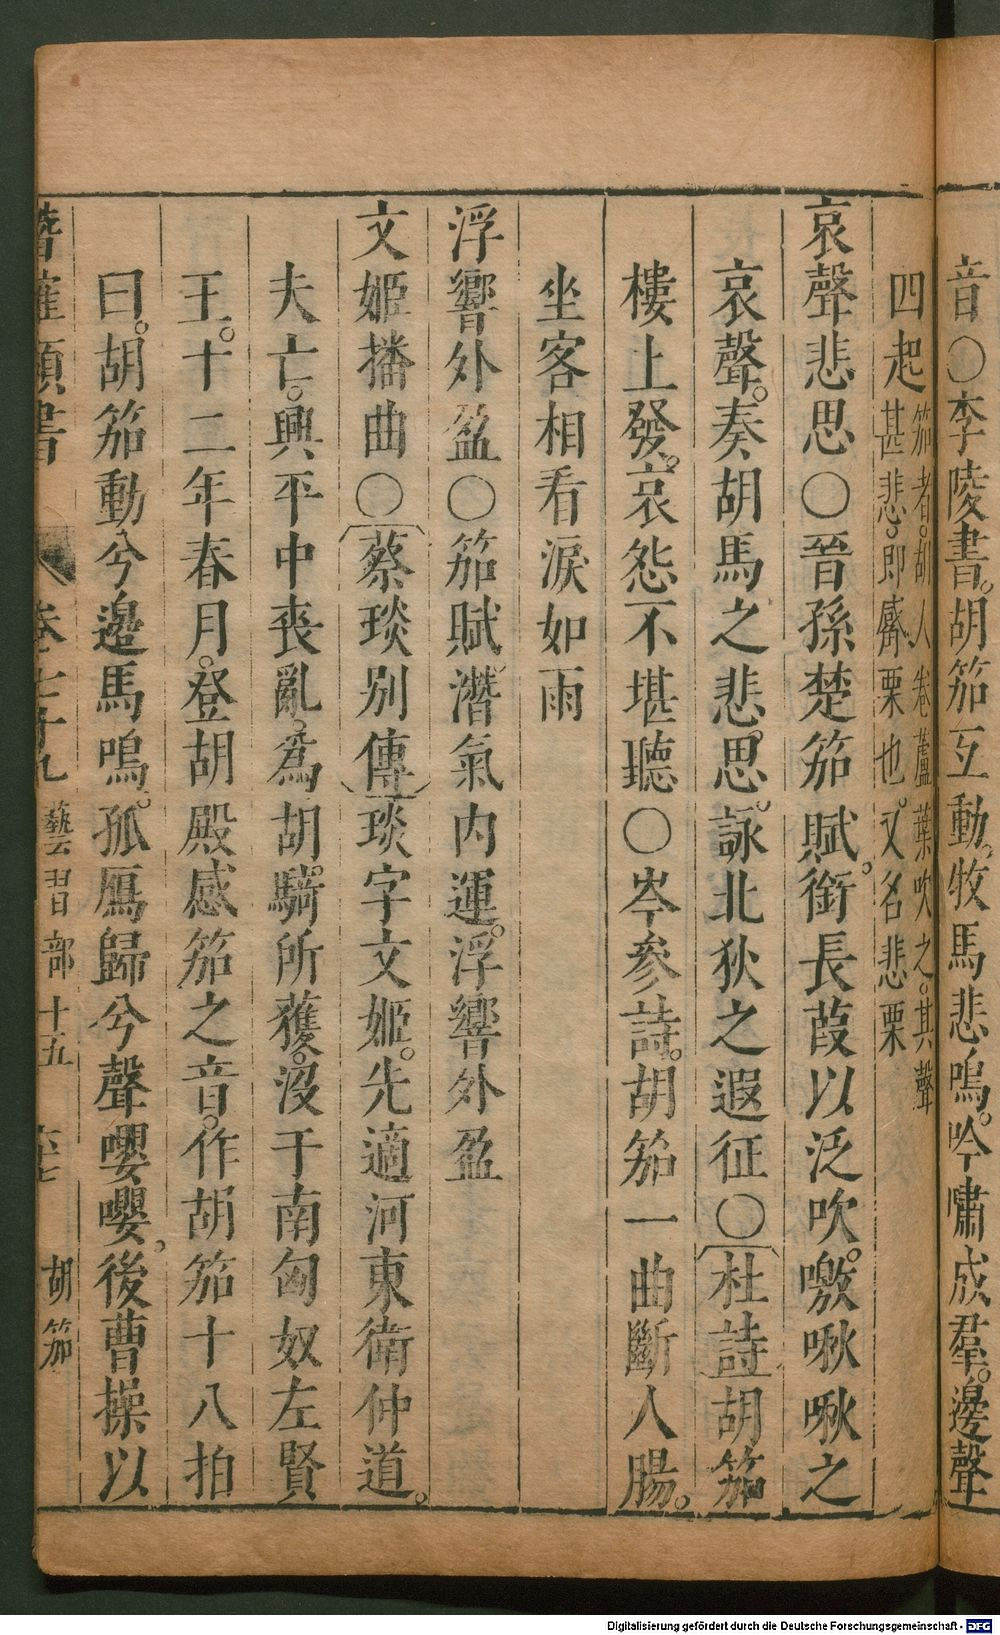 音○李陵書。胡笳互動。牧馬悲鳴。吟嘯成羣。邊聲
四起笳者。胡人卷蘆葉吹之。其聲
甚悲。即觱栗也。又名悲栗
哀聲悲思○晉孫楚笳賦。銜長葭以泛吹。噭啾啾之
哀聲。奏胡馬之悲思。詠北狄之遐征○杜詩胡笳
樓上發。哀怨不堪聽○岑參詩。胡笳一曲斷人腸。
坐客相看淚如雨
浮響外盈○笳賦。潛氣內運。浮響外盈
文姬播曲○蔡琰別傳琰字文姬。先適河東衛仲道。
夫亡。興平中喪亂。爲胡騎所獲。沒于南匈奴左賢
王。十二年春月。登胡殿感笳之音。作胡笳十八拍
曰。胡笳動兮邊馬鳴。孤鴈歸兮聲嚶嚶。後曹操以
潛確類書 卷七十九 藝習部十五 六七 胡笳
Digitalisierung gefördert durch die Deutsche Forschungsgemeinschaft - DFG